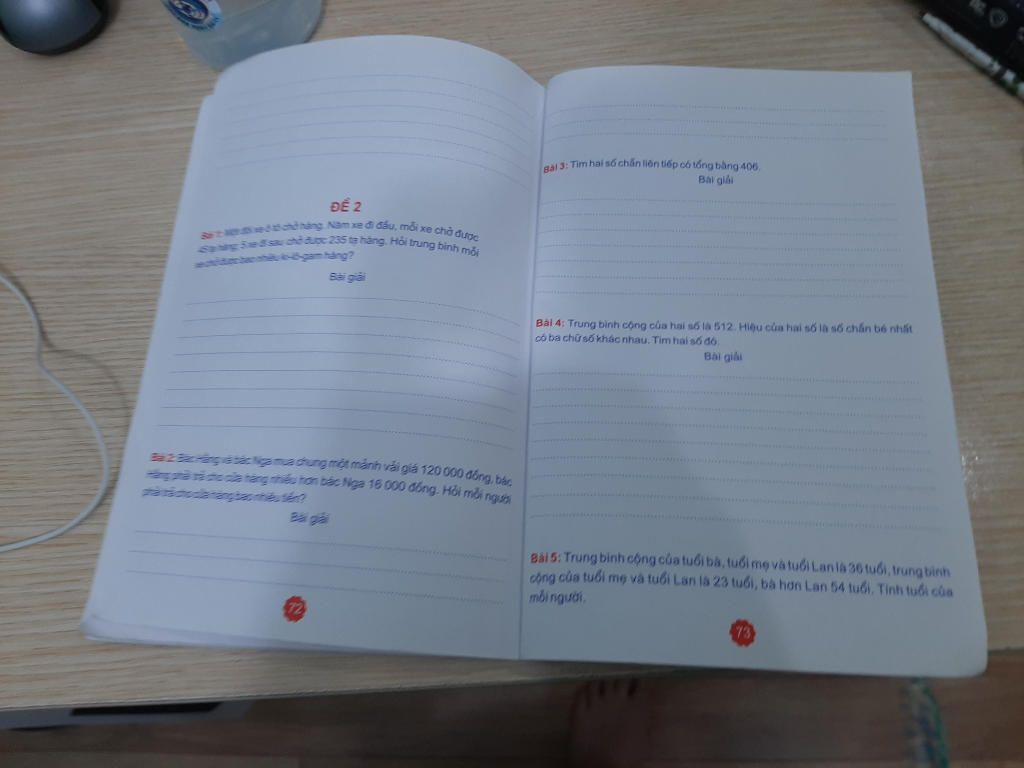 ĐỀ 2
Bài 1: Một đội xe ô tô chở hàng. Năm xe đi đầu, mỗi xe chở được
45 tạ hàng; 5 xe đi sau chở được 235 tạ hàng. Hỏi trung bình mỗi
xe chở được bao nhiêu ki-lô-gam hàng?
Bài giải
Bài 2: Bác Hằng và bác Nga mua chung một mảnh vải giá 120 000 đồng, bác
Hằng phải trả cho cửa hàng nhiều hơn bác Nga 16 000 đồng. Hỏi mỗi người
phải trả cho cửa hàng bao nhiêu tiền?
Bài giải
72
Bài 3: Tìm hai số chẵn liên tiếp có tổng bằng 406.
Bài giải
Bài 4: Trung bình cộng của hai số là 512. Hiệu của hai số là số chẵn bé nhất
có ba chữ số khác nhau. Tìm hai số đó.
Bài giải
Bài 5: Trung bình cộng của tuổi bà, tuổi mẹ và tuổi Lan là 36 tuổi, trung bình
cộng của tuổi mẹ và tuổi Lan là 23 tuổi, bà hơn Lan 54 tuổi. Tính tuổi của
mỗi người.
73